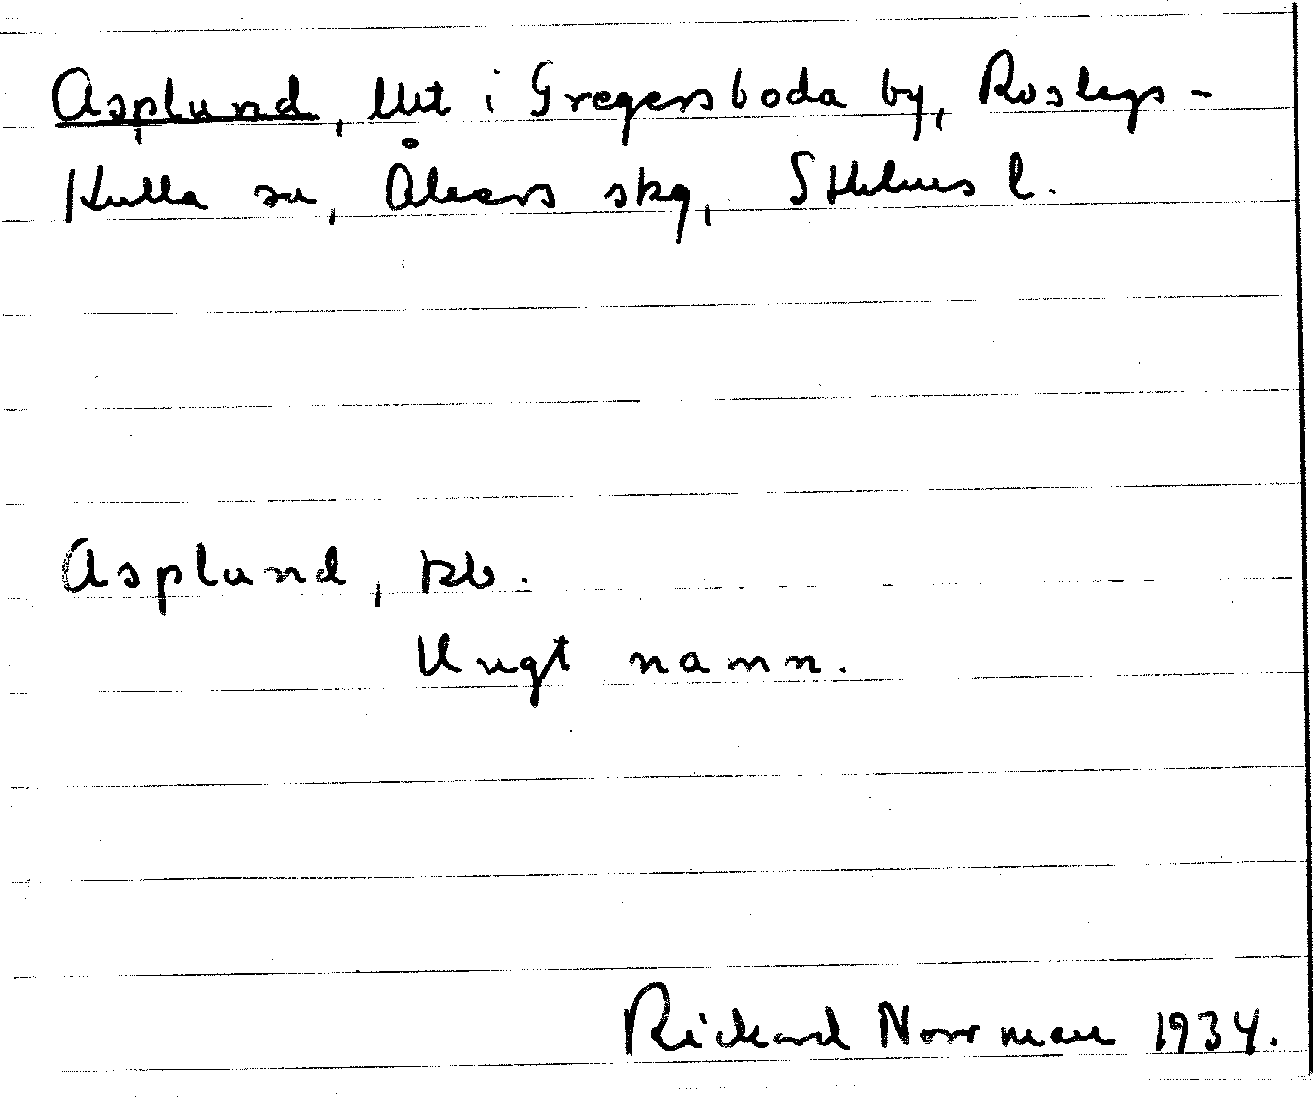 Asplund, lht i Gregersboda by, Roslags-
Kulla sn, Åkers skg, Sthlms l.
Asplund, Eb.
Ungt namn.
Rickard Norrman 1934.